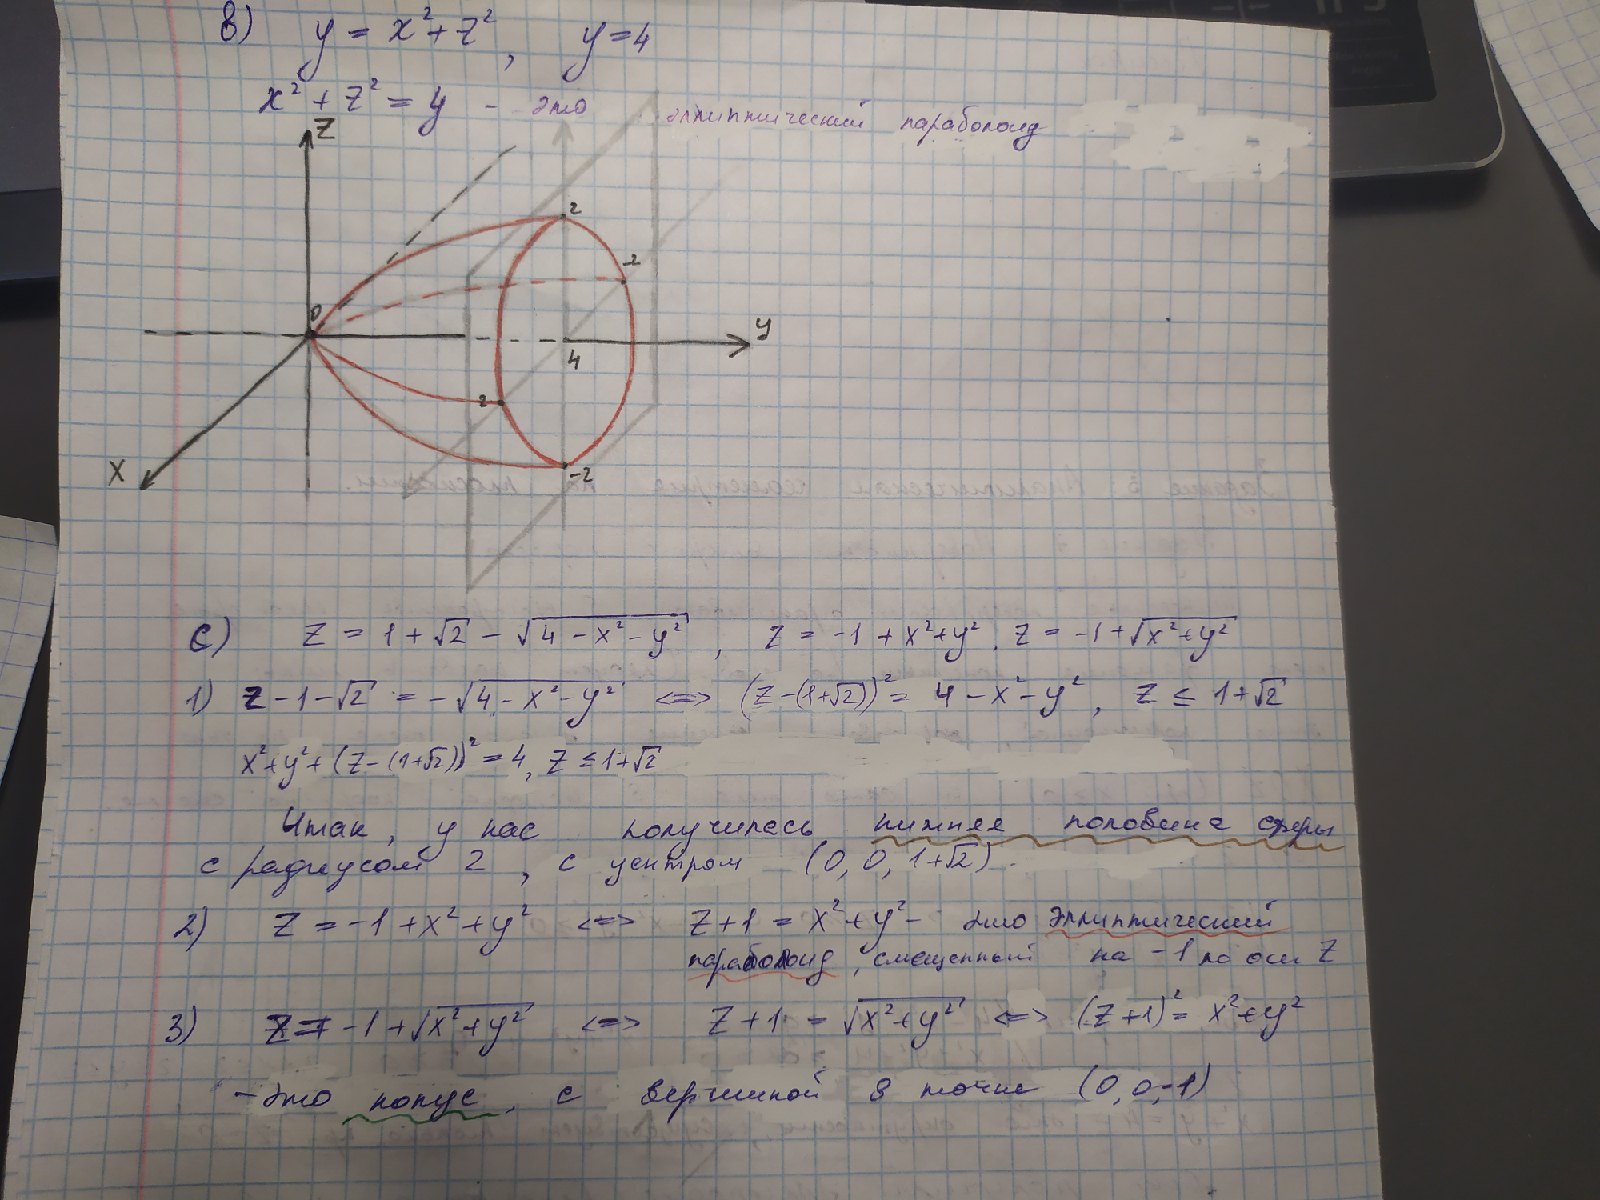 в) y = x² + z², y = 4
x² + z² = y - это эллиптический параболоид
z
2
-2
0
y
4
2
-2
x
c) z = 1 + √2 - √(4 - x² - y²), z = -1 + x² + y², z = -1 + √(x² + y²)
1) z - 1 - √2 = -√(4 - x² - y²) <=> (z - (1+√2))² = 4 - x² - y², z ≤ 1+√2
x² + y² + (z - (1+√2))² = 4, z ≤ 1+√2
Итак, у нас получилась нижняя половина сферы
с радиусом 2, с центром (0, 0, 1+√2).
2) z = -1 + x² + y² <=> z + 1 = x² + y² - это эллиптический
параболоид, смещенный на -1 по оси z
3) z = -1 + √(x² + y²) <=> z + 1 = √(x² + y²) <=> (z+1)² = x² + y²
- это конус, с вершиной в точке (0, 0, -1)